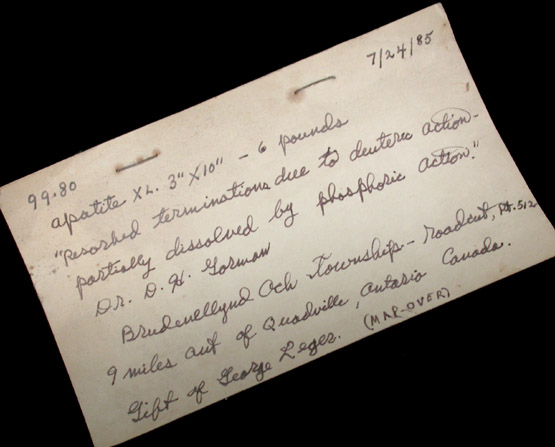 7/24/85
99.80
apatite XL. 3" X 10" - 6 pounds
"Resorbed terminations due to deuteric action-
partially dissolved by phosphoric action."
Dr. D. H. Gorman
Brudenellynd Och Township - roadcut, Rt. 512
9 miles out of Quadville, Ontario Canada.
Gift of George Leger. (MAP-OVER)